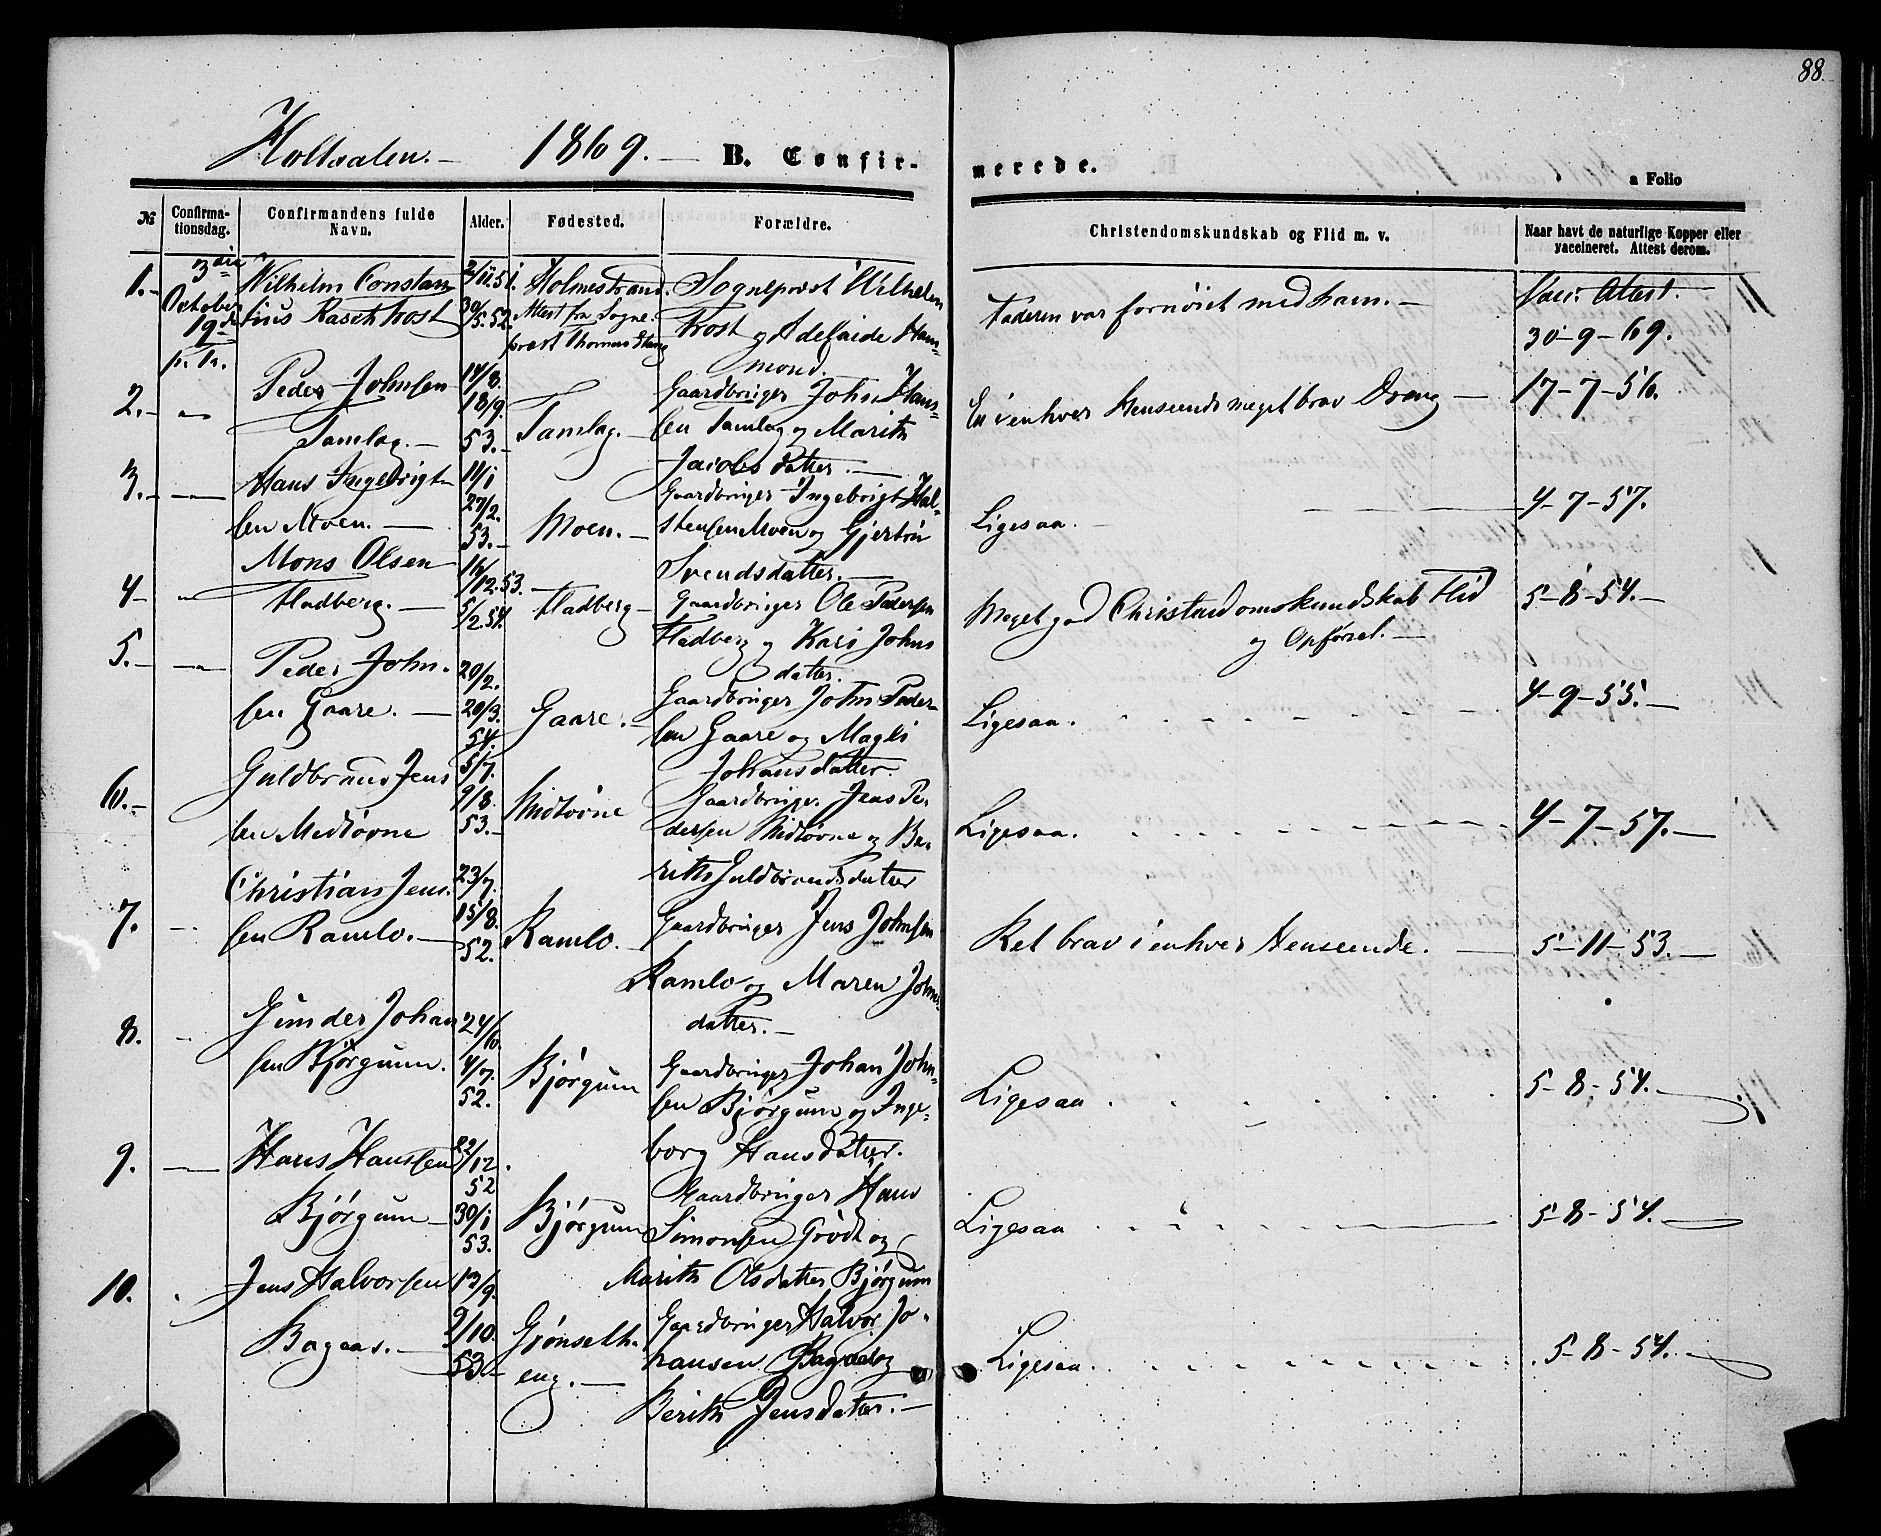 88.
Holtaalen. - 1869. - B. Confir- merede.
a Folio
№ Confirma- tionsdag. Confirmandens fulde Navn. Alder. Fødested. Forældre. Christendomskundskab og Flid m. v. Naar havt de naturlige Kopper eller vaccineret. Attest derom.
1. - 3die October 19de p. tr.
Wilhelm Constan
tius Rasch Frost
2/11.51.
30/5.52.
Holmestrand.
Attest fra Sogne-
præst Thomas Stang
Sognepræst Wilhelm
Frost og Adelaide Ham-
mond.
Faderen var fornöiet med ham. -
Vac. Attest.
30-9-69.
2. - "
Peder Johnsen
Tamlag. -
14/8.
18/9.
53. -
Tamlag. -
Gaardbruger John Hans-
sen Tamlag og Marith
Jacobsdatter. -
En i enhver Henseende meget brav Dreng -
17-7-56.
3. - "
Hans Ingebrigt-
sen Moen. -
11/1
27/2.
53. -
Moen. -
Gaardbruger Ingebrigt Hal-
stensen Moen og Gjertru
Svendsdatter. -
Ligesaa. -
4-7-57.
4 - "
Mons Olsen
Hadberg. -
16/12.53. -
5/2.54.
Hadberg -
Gaardbruger Ole Pedersen
Hadberg og Kari Johns
datter.
Meget god Christendomskundskab Flid
og Opførsel. -
5-8-54. -
5. - "
Peder John-
sen Gaare. -
20/2.
20/3.
54.
Gaare. -
Gaardbruger John Peder-
sen Gaare og Magli
Johansdatter.
Ligesaa.
4-9-55. -
6. -
Guldbrand Jens
sen Medtøvne
5/7.
9/8.
53. -
Midtøvne
Gaardbruger Jens Pe
dersen Midtøvne og Be-
rith Guldbrandsdatter
Ligesaa.
4-7-57. -
7.
Christian Jens-
sen Ramlo. -
23/7.
15/8.
52.
Ramlo.
Gaardbruger Jens Johnsen
Ramlo og Maren Johns-
datter. -
Ret brav i enhver Henseende. -
5-11-53. -
8.
Gunder Johan
sen Bjørgum.
24/6.
4/7.
52.
Bjørgum
Gaardbruger Johan John-
sen Bjørgum og Inge-
borg Hansdatter.
Ligesaa
5-8-54. -
9. -
Hans Hanssen
Bjørgum -
22/12.
52
30/1
53.
Bjørgum
Gaardbruger Hans
Simonsen Grødt og
Marith Olsdatter Bjørgum
Ligesaa
5-8-54. -
10.
Jens Halvorsen
Bagaas. -
13/9.
9/10.
53 -
Grønseth-
eng. -
Gaardbruger Halvor Jo-
hansen Bagaas og
Berith Jensdatter. -
Ligesaa.
5-8-54. -